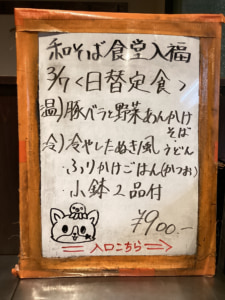 和そば食堂入福
3/7<日替定食>
温)豚バラと野菜あんかけそば
冷)冷やしたぬき風うどん
・ふりかけごはん(かつお)
・小鉢2品付
¥900.-
入口こちら